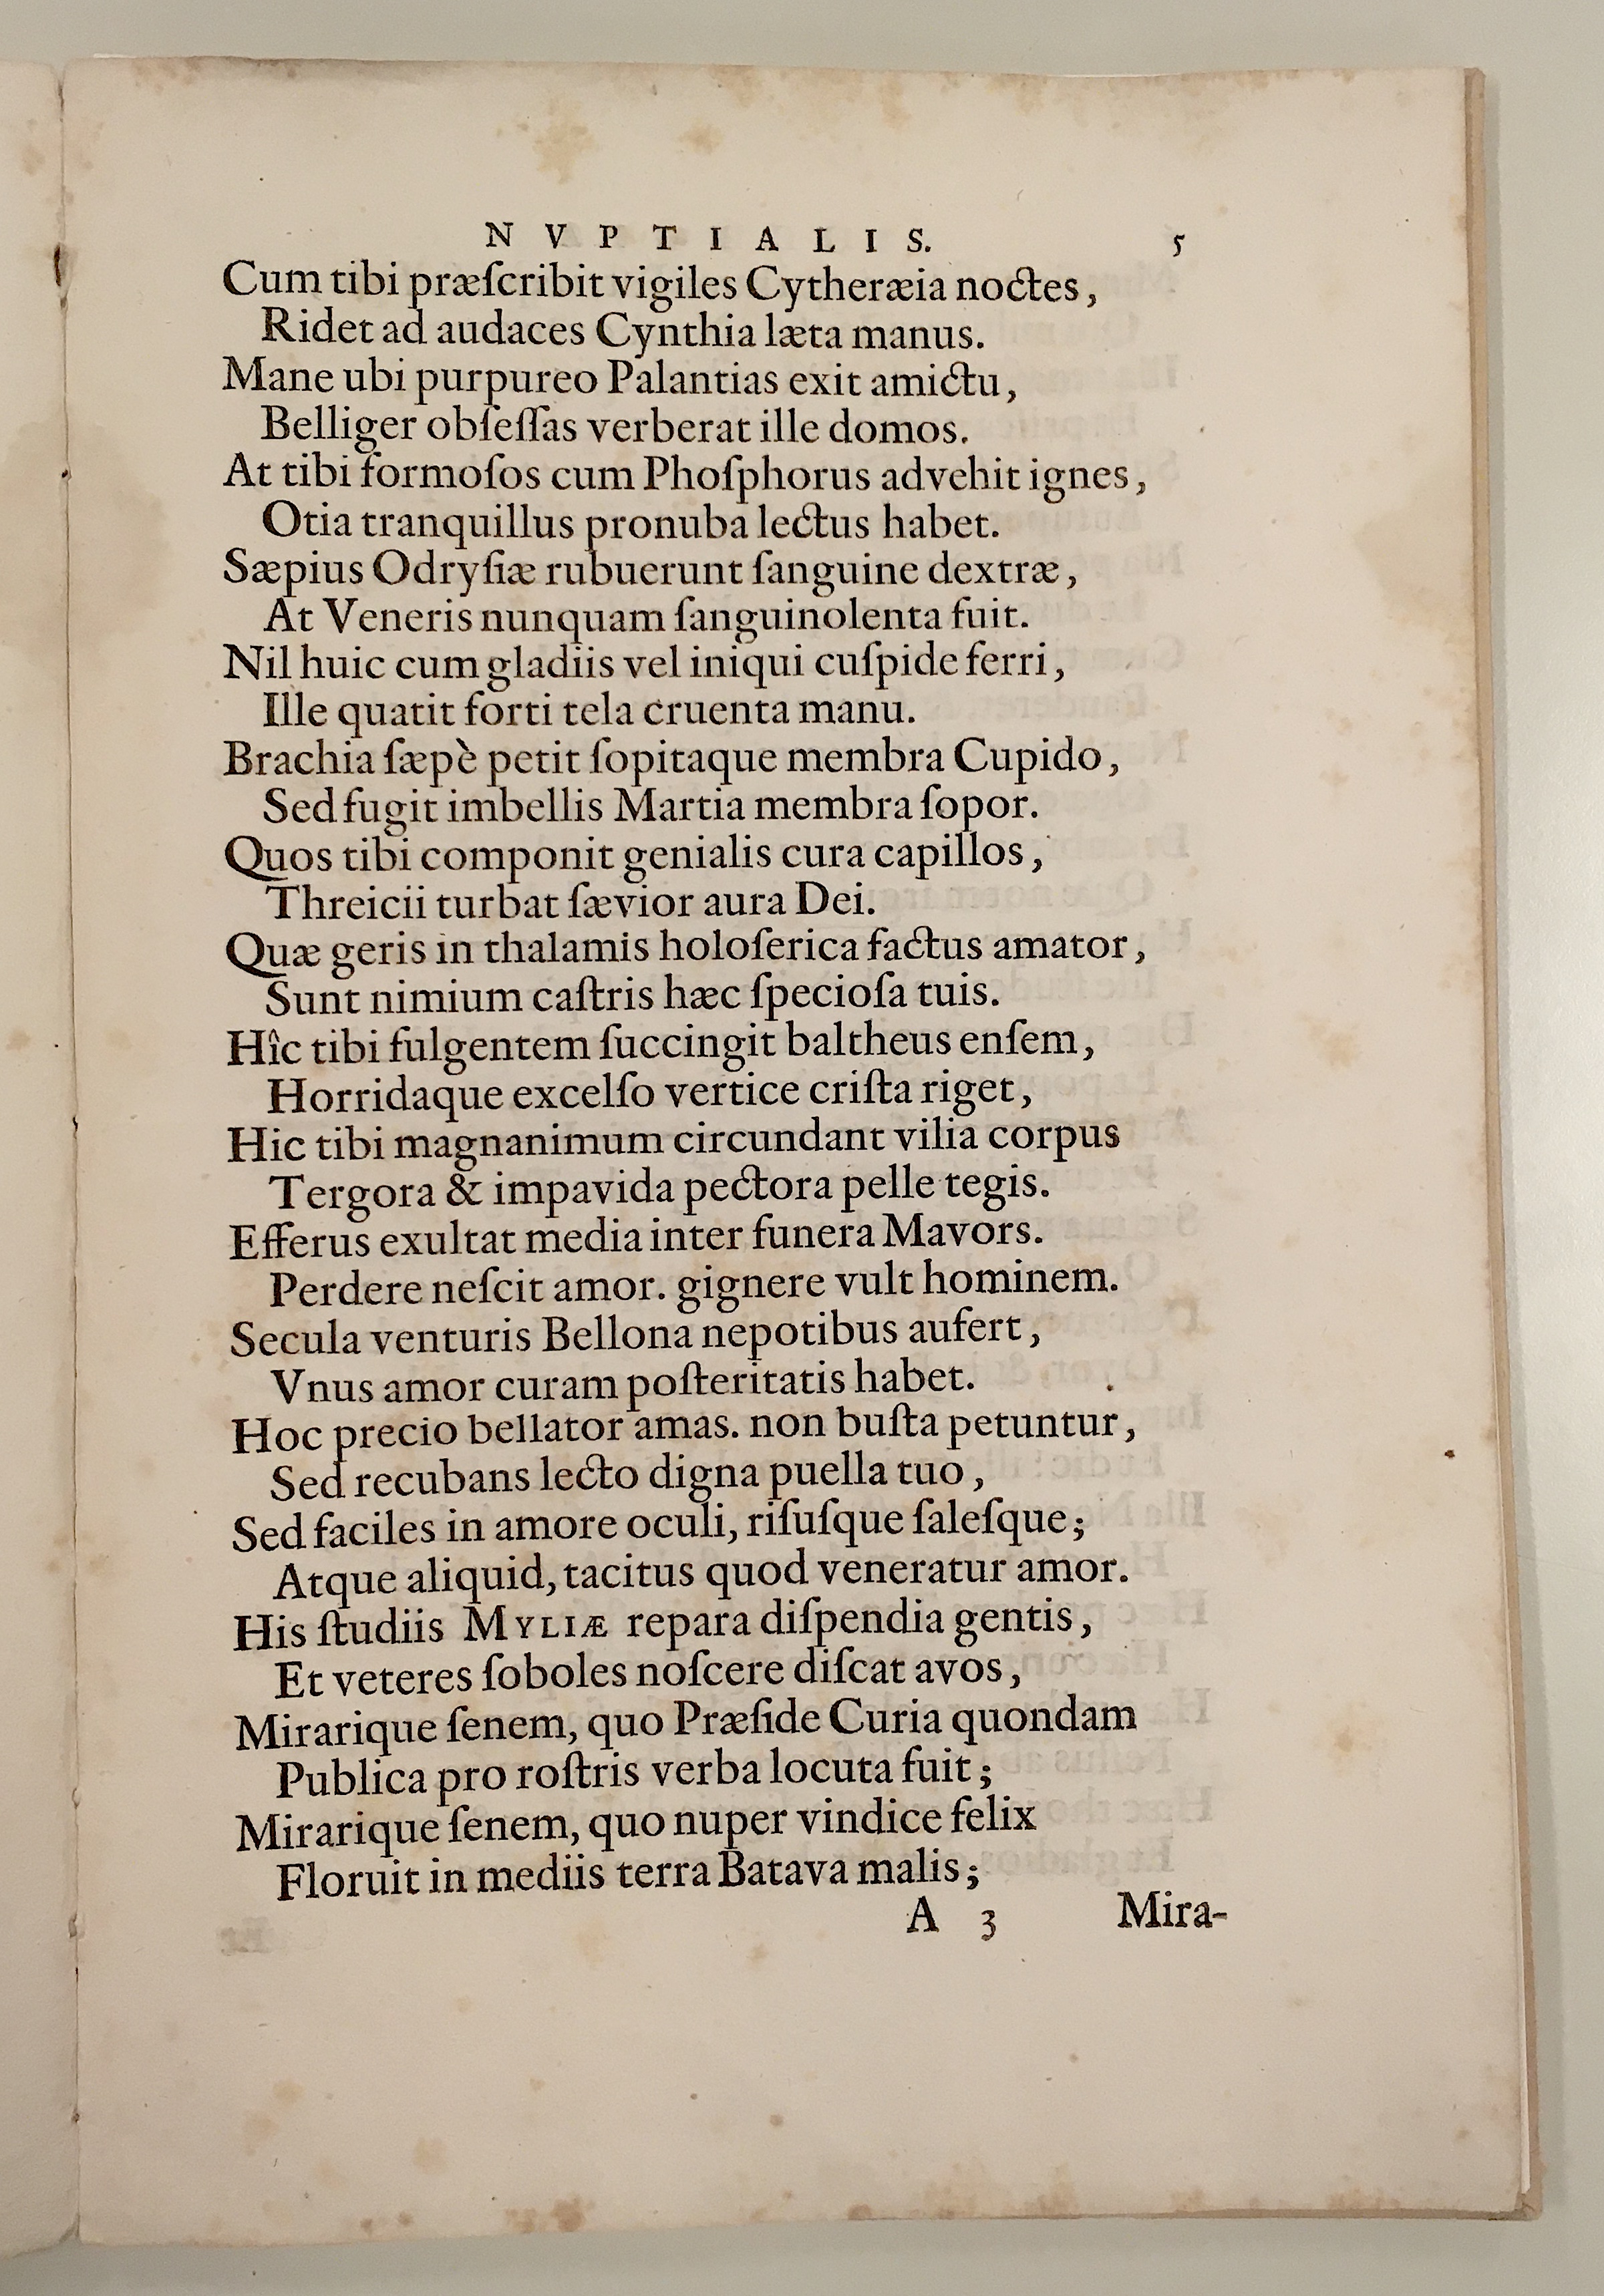 NVPTIALIS. 5
Cum tibi præſcribit vigiles Cytheræia noctes,
Ridet ad audaces Cynthia læta manus.
Mane ubi purpureo Palantias exit amictu,
Belliger obſeſſas verberat ille domos.
At tibi formoſos cum Phoſphorus advehit ignes,
Otia tranquillus pronuba lectus habet.
Sæpius Odryſiæ rubuerunt ſanguine dextræ,
At Veneris nunquam ſanguinolenta fuit.
Nil huic cum gladiis vel iniqui cuſpide ferri,
Ille quatit forti tela cruenta manu.
Brachia ſæpè petit ſopitaque membra Cupido,
Sed fugit imbellis Martia membra ſopor.
Quos tibi componit genialis cura capillos,
Threicii turbat ſævior aura Dei.
Quæ geris in thalamis holoſerica factus amator,
Sunt nimium caſtris hæc ſpecioſa tuis.
Hîc tibi fulgentem ſuccingit baltheus enſem,
Horridaque excelſo vertice criſta riget,
Hic tibi magnanimum circundant vilia corpus
Tergora & impavida pectora pelle tegis.
Efferus exultat media inter funera Mavors.
Perdere neſcit amor. gignere vult hominem.
Secula venturis Bellona nepotibus aufert,
Vnus amor curam poſteritatis habet.
Hoc precio bellator amas. non buſta petuntur,
Sed recubans lecto digna puella tuo,
Sed faciles in amore oculi, riſuſque ſaleſque;
Atque aliquid, tacitus quod veneratur amor.
His ſtudiis MYLIÆ repara diſpendia gentis,
Et veteres ſoboles noſcere diſcat avos,
Mirarique ſenem, quo Præſide Curia quondam
Publica pro roſtris verba locuta fuit;
Mirarique ſenem, quo nuper vindice felix
Floruit in mediis terra Batava malis;
A 3 Mira-